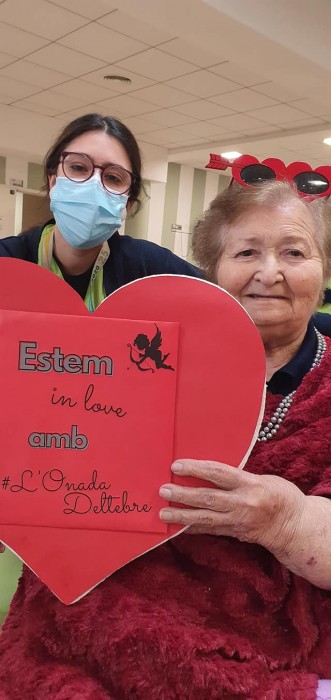 Estem
in love
amb
#L'Onada
Deltebre